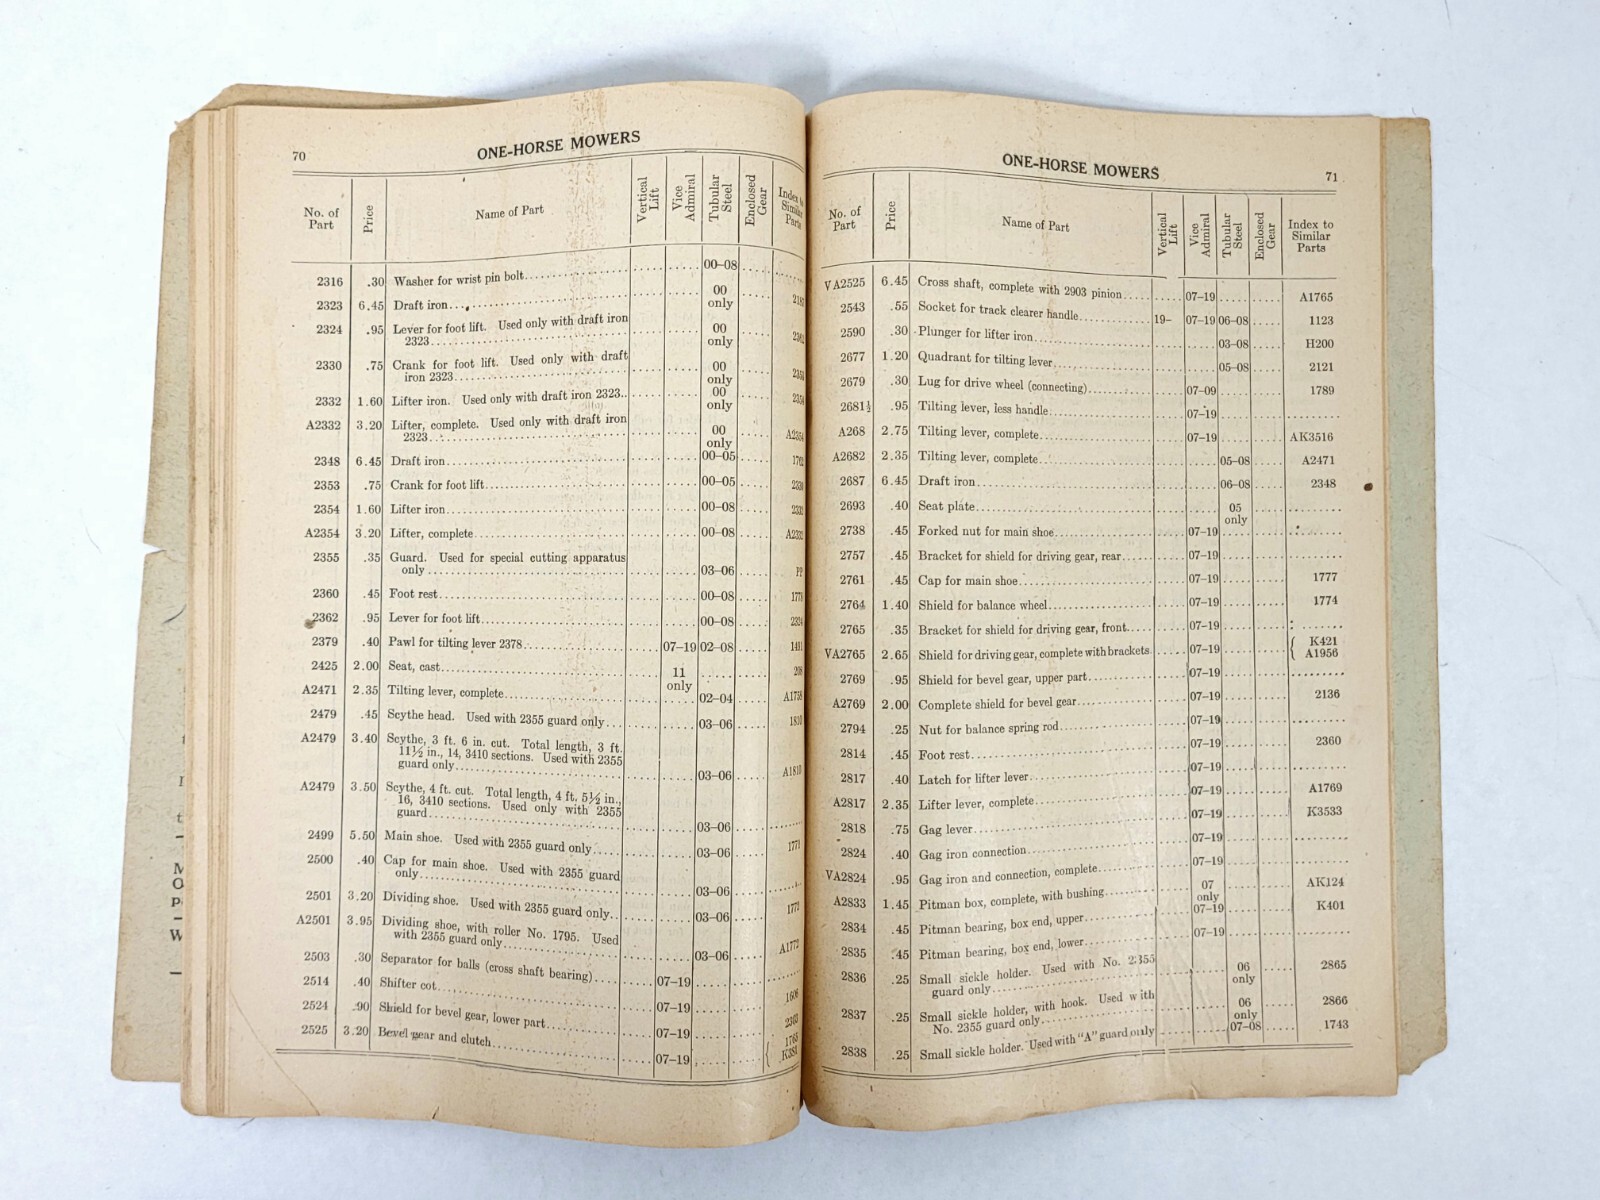 70
ONE-HORSE MOWERS
No. of Part Price Name of Part Vertical Lift Vice Admiral Tubular Steel Enclosed Gear Index to Similar Parts
2316 .30 Washer for wrist pin bolt 00–08
2323 6.45 Draft iron 00 only
2324 .95 Lever for foot lift. Used only with draft iron
2323 00 only 2362
2330 .75 Crank for foot lift. Used only with draft
iron 2323 00 only
2332 1.60 Lifter iron. Used only with draft iron 2323 00 only 2354
A2332 3.20 Lifter, complete. Used only with draft iron
2323 00 only A2354
2348 6.45 Draft iron 00–05
2353 .75 Crank for foot lift 00–05
2354 1.60 Lifter iron 00–08
A2354 3.20 Lifter, complete 00–08 A2332
2355 .35 Guard. Used for special cutting apparatus
only 03–06
2360 .45 Foot rest 00–08
2362 .95 Lever for foot lift 00–08 2324
2379 .40 Pawl for tilting lever 2378 07–19 02–08
2425 2.00 Seat, cast 11 only
A2471 2.35 Tilting lever, complete 02–04
2479 .45 Scythe head. Used with 2355 guard only 03–06 1810
A2479 3.40 Scythe, 3 ft. 6 in. cut. Total length, 3 ft.
11½ in., 14, 3410 sections. Used with 2355
guard only 03–06 A1810
A2479 3.50 Scythe, 4 ft. cut. Total length, 4 ft. 5½ in.,
16, 3410 sections. Used only with 2355
guard 03–06
2499 5.50 Main shoe. Used with 2355 guard only 03–06 1771
2500 .40 Cap for main shoe. Used with 2355 guard
only 03–06
2501 3.20 Dividing shoe. Used with 2355 guard only 03–06 1772
A2501 3.95 Dividing shoe, with roller No. 1795. Used
with 2355 guard only 03–06 A1772
2503 .30 Separator for balls (cross shaft bearing) 07–19
2514 .40 Shifter cot 07–19 1606
2524 .90 Shield for bevel gear, lower part 07–19
2525 3.20 Bevel gear and clutch 07–19 1765
K381
ONE-HORSE MOWERS
71
No. of Part Price Name of Part Vertical Lift Vice Admiral Tubular Steel Enclosed Gear Index to Similar Parts
VA2525 6.45 Cross shaft, complete with 2903 pinion 07–19 A1765
2543 .55 Socket for track clearer handle 19– 07–19 06–08 1123
2590 .30 Plunger for lifter iron 03–08 H200
2677 1.20 Quadrant for tilting lever 05–08 2121
2679 .30 Lug for drive wheel (connecting) 07–09 1789
2681½ .95 Tilting lever, less handle 07–19
A268 2.75 Tilting lever, complete 07–19 AK3516
A2682 2.35 Tilting lever, complete 05–08 A2471
2687 6.45 Draft iron 06–08 2348
2693 .40 Seat plate 05 only
2738 .45 Forked nut for main shoe 07–19
2757 .45 Bracket for shield for driving gear, rear 07–19
2761 .45 Cap for main shoe 07–19 1777
2764 1.40 Shield for balance wheel 07–19 1774
2765 .35 Bracket for shield for driving gear, front 07–19
VA2765 2.65 Shield for driving gear, complete with brackets 07–19 { K421
A1956
2769 .95 Shield for bevel gear, upper part 07–19
A2769 2.00 Complete shield for bevel gear 07–19 2136
2794 .25 Nut for balance spring rod 07–19
2814 .45 Foot rest 07–19 2360
2817 .40 Latch for lifter lever 07–19
A2817 2.35 Lifter lever, complete 07–19 A1769
2818 .75 Gag lever 07–19 K3533
2824 .40 Gag iron connection 07–19
VA2824 .95 Gag iron and connection, complete 07–19
A2833 1.45 Pitman box, complete, with bushing 07 only AK124
2834 .45 Pitman bearing, box end, upper 07–19 K401
2835 .45 Pitman bearing, box end, lower 07–19
2836 .25 Small sickle holder. Used with No. 2355
guard only 06 only 2865
2837 .25 Small sickle holder, with hook. Used with
No. 2355 guard only 06 only 2866
2838 .25 Small sickle holder. Used with "A" guard only 07–08 1743